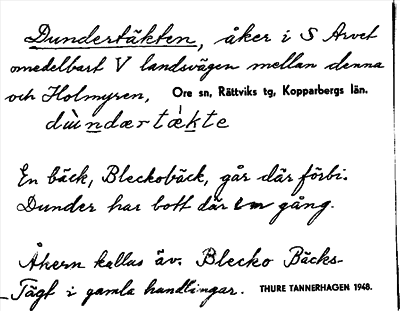 Dundertäkten, åker i S Arvet
omedelbart V landsvägen mellan denna
och Holmyren, Ore sn, Rättviks tg, Kopparbergs län.
dùndærtèkte
En bäck, Bleckobäck, går där förbi.
Dunder har bott där en gång.
Åkern kallas äv. Blecko Bäcks-
Tägt i gamla handlingar. THURE TANNERHAGEN 1948.